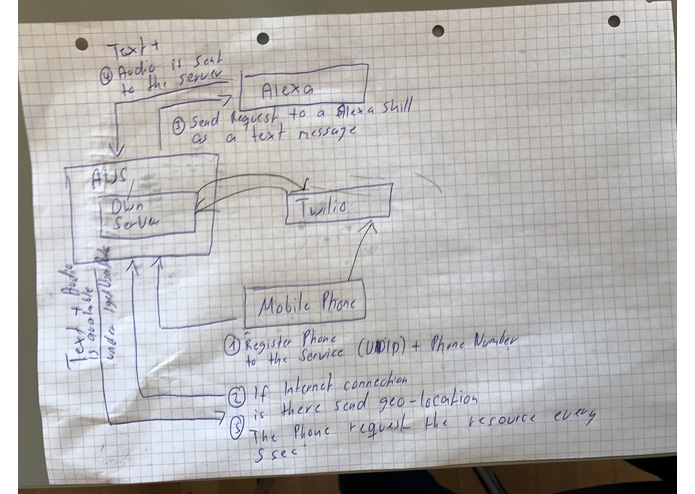 Text +
④ Audio is sent
to the server
Alexa
③ Send Request to a Alexa skill
as a text message
AWS
Own
Server
Twilio
Text + Audio
is available
under
Mobile Phone
① Register Phone
to the Service (UDID) + Phone Number
② If Internet connection
is there send geo-location
⑤ The Phone request the resource every
5 sec